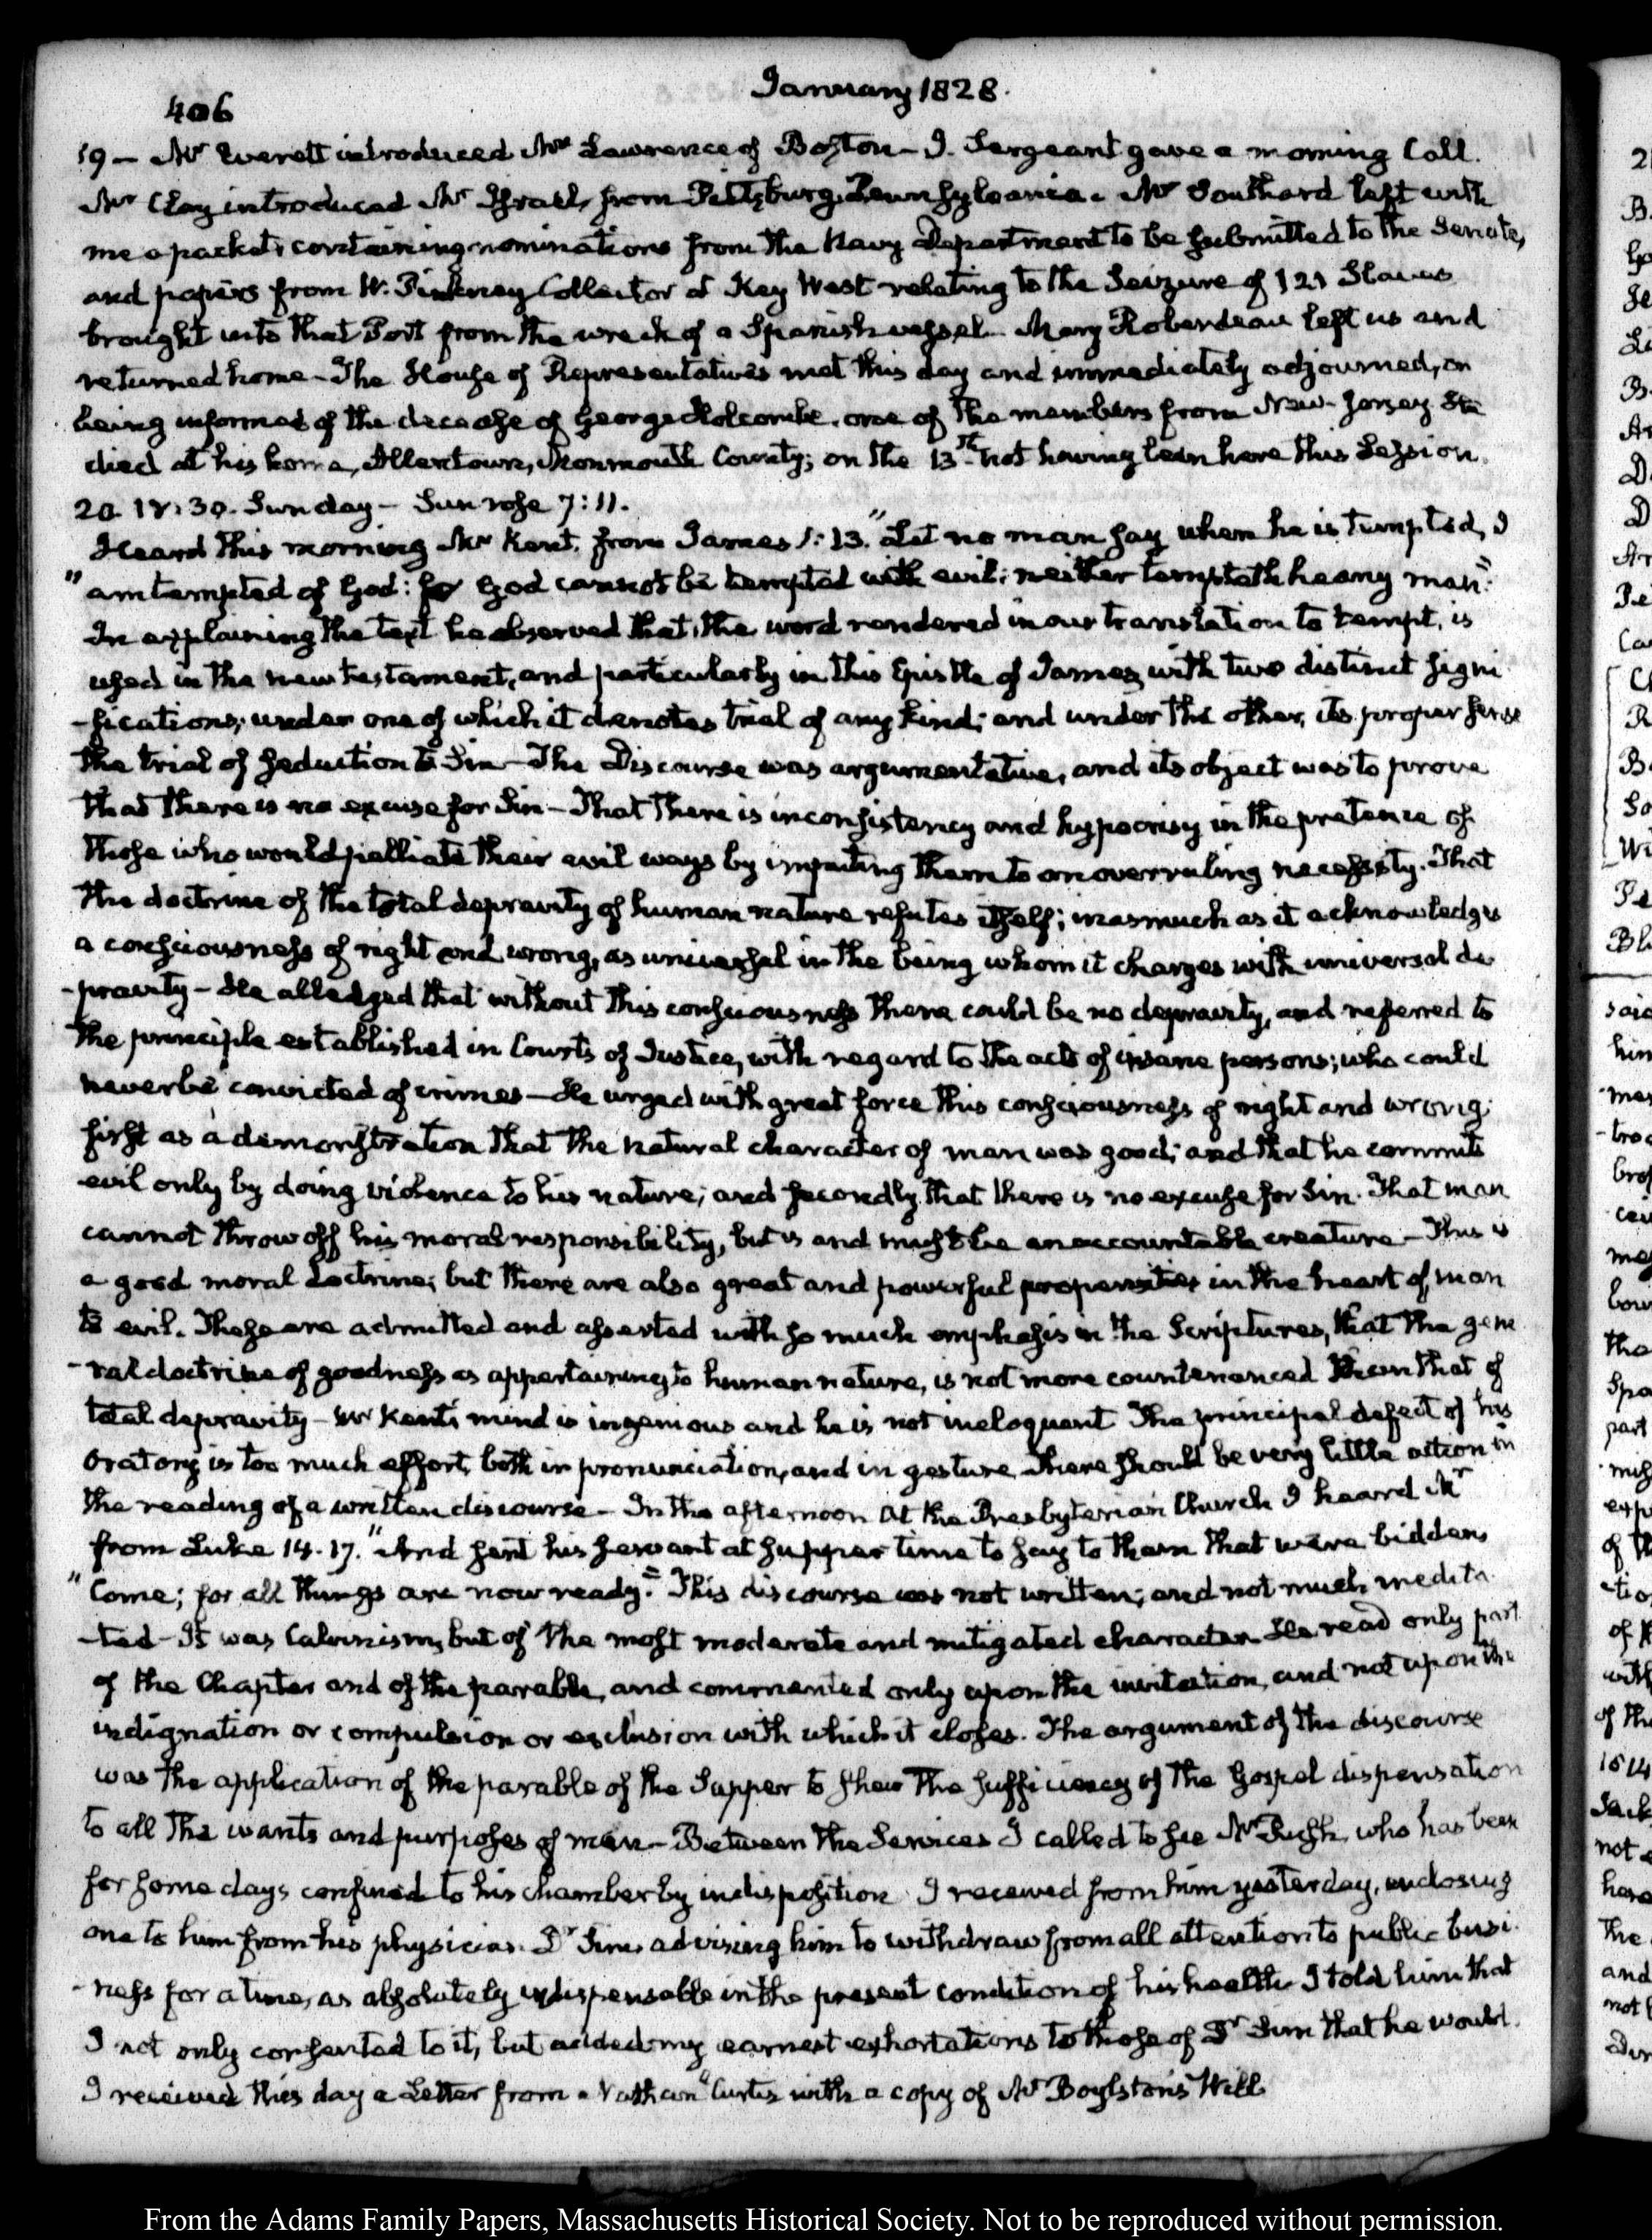 406
January 1828.
19 — Mr Everett introduced Mr Lawrence of Boston — J. Sergeant gave a morning Call.
Mr Clay introduced Mr Israel, from Pittsburg, Pennsylvania. Mr Southard left with
me a packet, containing nominations from the Navy Department to be submitted to the Senate,
and papers from W. Pinkney Collector at Key West relating to the Seizure of 121 Slaves
brought into that Port from the wreck of a Spanish vessel. Mary Roberdeau left us and
returned home — The House of Representatives met this day and immediately adjourned, on
being informed of the decease of George Holcombe, one of the members from New-Jersey. He
died at his home, Allentown, Monmouth County; on the 13th not having been here this Session.
20. IV:30. Sunday — Sun rose 7:11.
Heard this morning Mr Kent, from James 1:13. "Let no man say when he is tempted, I
"am tempted of God: for God cannot be tempted with evil; neither tempteth he any man":
In explaining the text he observed that, the word rendered in our translation to tempt, is
used in the new testament, and particularly in this Epistle of James, with two distinct signi
-fications; under one of which it denotes trial of any kind; and under the other, its proper sense
the trial of seduction to Sin — The Discourse was argumentative, and its object was to prove
that there is no excuse for Sin — That there is inconsistency and hypocrisy in the pretence of
those who would palliate their evil ways by imputing them to an overruling necessity. That
the doctrine of the total depravity of human nature refutes itself; inasmuch as it acknowledges
a consciousness of right and wrong, as universal in the being whom it charges with universal de
-pravity — He alledged that without this consciousness there could be no depravity, and referred to
the principle established in Courts of Justice, with regard to the acts of insane persons; who could
never be convicted of crimes — He urged with great force this consciousness of right and wrong;
first as a demonstration that the natural character of man was good; and that he commits
evil only by doing violence to his nature; and secondly, that there is no excuse for Sin. That man
cannot throw off his moral responsibility, but is and must be an accountable creature — This is
a good moral doctrine; but there are also great and powerful propensities in the heart of man
to evil. These are admitted and asserted with so much emphasis in the Scriptures, that the gene
-ral doctrine of goodness as appertaining to human nature, is not more countenanced than that of
total depravity — Mr Kent's mind is ingenious and he is not ineloquent The principal defect of his
Oratory is too much effort, both in pronunciation, and in gesture. There should be very little action in
the reading of a written discourse — In the afternoon at the Presbyterian Church I heard Mr
from Luke 14.17. "And sent his servant at supper time to say to them that were bidden,
"Come; for all things are now ready." This discourse was not written; and not much medita
-ted — It was Calvinism, but of the most moderate and mitigated character. He read only part
of the Chapter and of the parable, and commented only upon the invitation, and not upon the
indignation or compulsion or exclusion with which it closes. The argument of the discourse
was the application of the parable of the Supper to shew the sufficiency of the Gospel dispensation
to all the wants and purposes of man — Between the Services I called to see Mr Rush, who has been
for some days confined to his chamber by indisposition I received from him yesterday, enclosing
one to him from his physician Dr Sim, advising him to withdraw from all attention to public busi
-ness for a time, as absolutely indispensable in the present condition of his health I told him that
I not only consented to it, but added my earnest exhortations to those of Dr Sim that he would.
I received this day a Letter from Nathan Curtis with a copy of Mr Boylston's Will
From the Adams Family Papers, Massachusetts Historical Society. Not to be reproduced without permission.